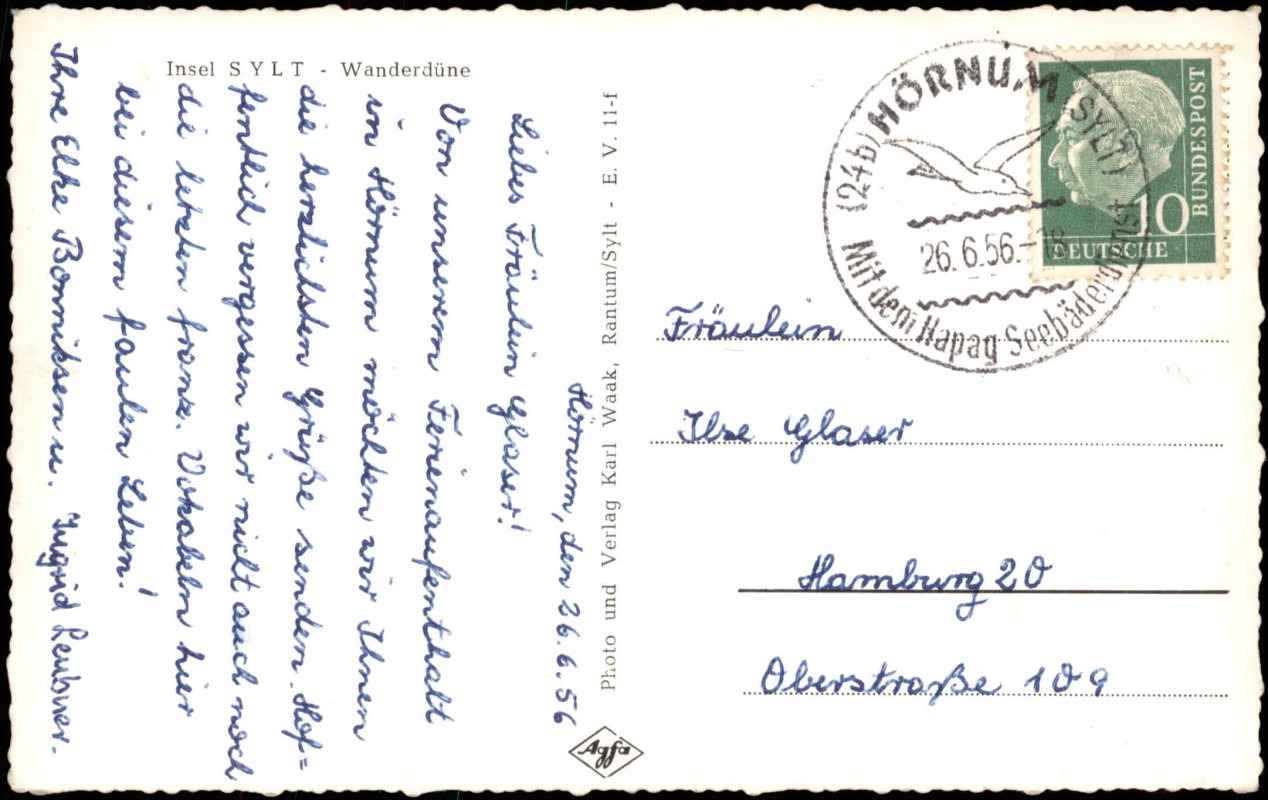 Insel SYLT - Wanderdüne
Hörnum, den 26.6.56
Liebes Fräulein Glaser!
Von unserem Ferienaufenthalt
in Hörnum möchten wir Ihnen
die herzlichsten Grüße senden. Hof=
fentlich vergessen wir nicht auch noch
die letzten franz. Vokabeln hier
bei diesem faulen Leben!
Ihre Elke Bonniksen u. Ingrid Leubner.
Photo und Verlag Karl Waak, Rantum/Sylt - E. V. 11-f
Agfa
(24b) HÖRNUM (SYLT)
26.6.56.-18
Mit dem Hapag Seebäderdienst
DEUTSCHE
BUNDESPOST
10
Fräulein
Ilse Glaser
Hamburg 20
Oberstraße 109